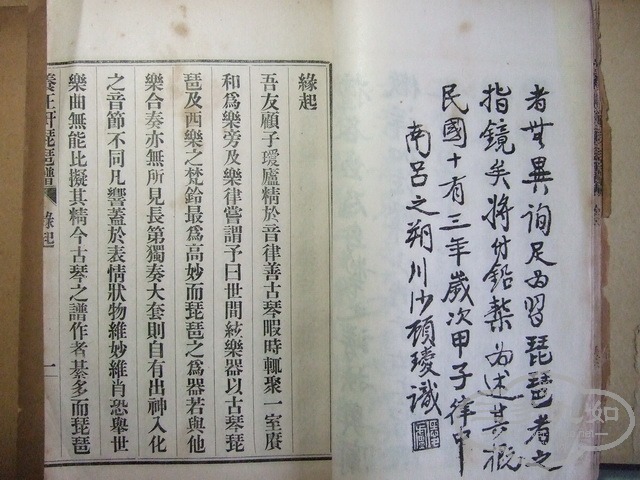 者無異詢足為習琵琶者之
指鏡矣將付鉛槧為述其概
民國十有三年歲次甲子律中
南呂之朔川沙顧識
緣起
吾友顧子璦廬精於音律善古琴暇時輒聚一室賡
和爲樂旁及樂律嘗謂予曰世間絃樂器以古琴琵
琶及西樂之梵鈴最爲高妙而琵琶之爲器若與他
樂合奏亦無所見長第獨奏大套則自有出神入化
之音節不同凡響蓋於表情狀物維妙維肖恐舉世
樂曲無能比擬其精今古琴之譜作者綦多而琵琶
養正軒琵琶譜 緣起 一